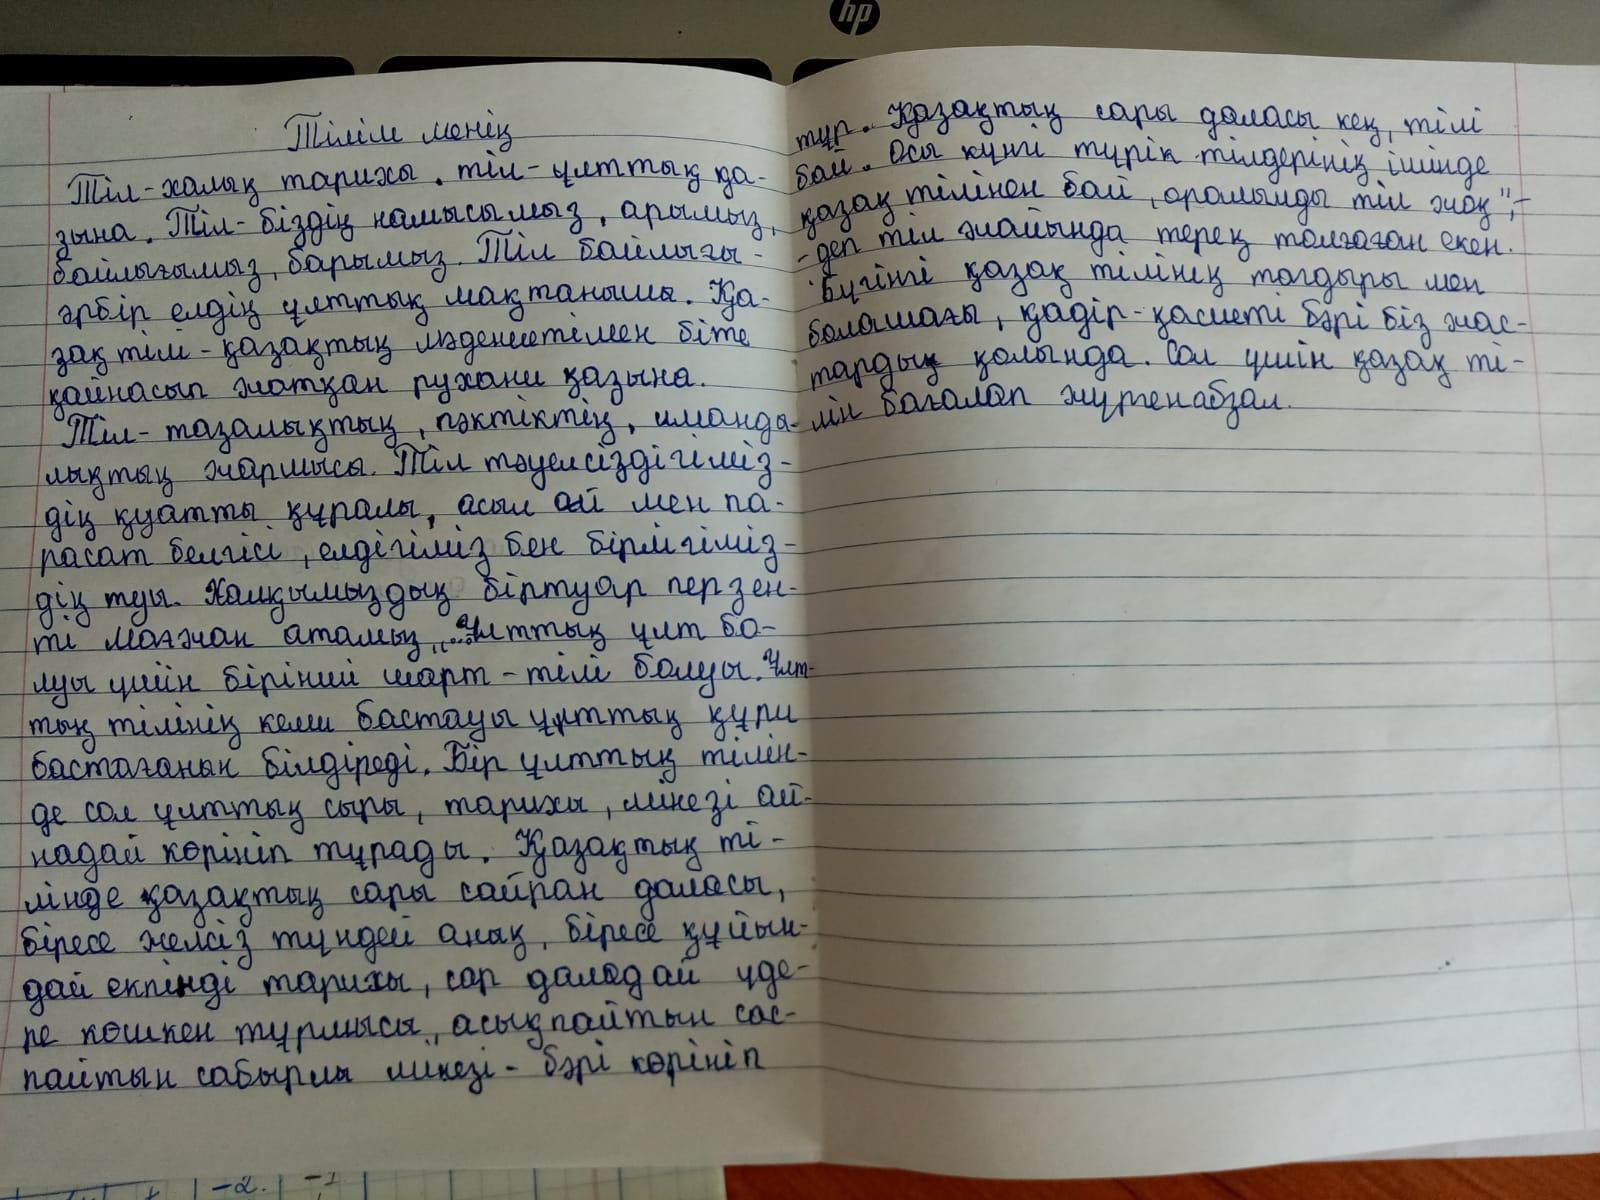 hp
Тілім менің
Тіл-халық тарихы. тіл-ұлттық қа-
зына. Тіл-біздің намысымыз, арымыз,
байлығымыз, барымыз. Тіл байлығы-
әрбір елдің ұлттық мақтанышы. Қа-
зақ тілі-қазақтың мәдениетімен біте
қайнасып жатқан рухани қазына.
Тіл-тазалықтың, пәктіктің, иманды-
лықтың жаршысы. Тіл тәуелсіздігіміз-
дің қуатты құралы, асыл ой мен па-
расат белгісі, елдігіміз бен бірлігіміз-
дің туы. Халқымыздың біртуар перзен-
ті Мағжан атамыз „Ұлттың ұлт бо-
луы үшін бірінші шарт - тілі болуы. Ұлт-
тың тілінің кеми бастауы ұлттың құри
бастағанын білдіреді. Бір ұлттың тілін-
де сол ұлттың сыры, тарихы, мінезі ай-
надай көрініп тұрады. Қазақтың ті-
лінде қазақтың сары сайран даласы,
біресе желсіз түндей анық, біресе құйын-
дай екпінді тарихы, сар даладай үде-
ре көшкен тұрмысы, асықпайтын сас-
пайтын сабырлы мінезі - бәрі көрініп
тұр. Қазақтың сары даласы кең, тілі
бай. Осы күнгі түрік тілдерінің ішінде
қазақ тілінен бай, оралымды тіл жоқ",-
- деп тіл жайында терең толғаған екен.
Бүгінгі қазақ тілінің тағдыры мен
болашағы, қадір-қасиеті бәрі біз жас-
тардың қолында. Сол үшін қазақ ті-
лін бағалап жүргенабзал.
-2. -1